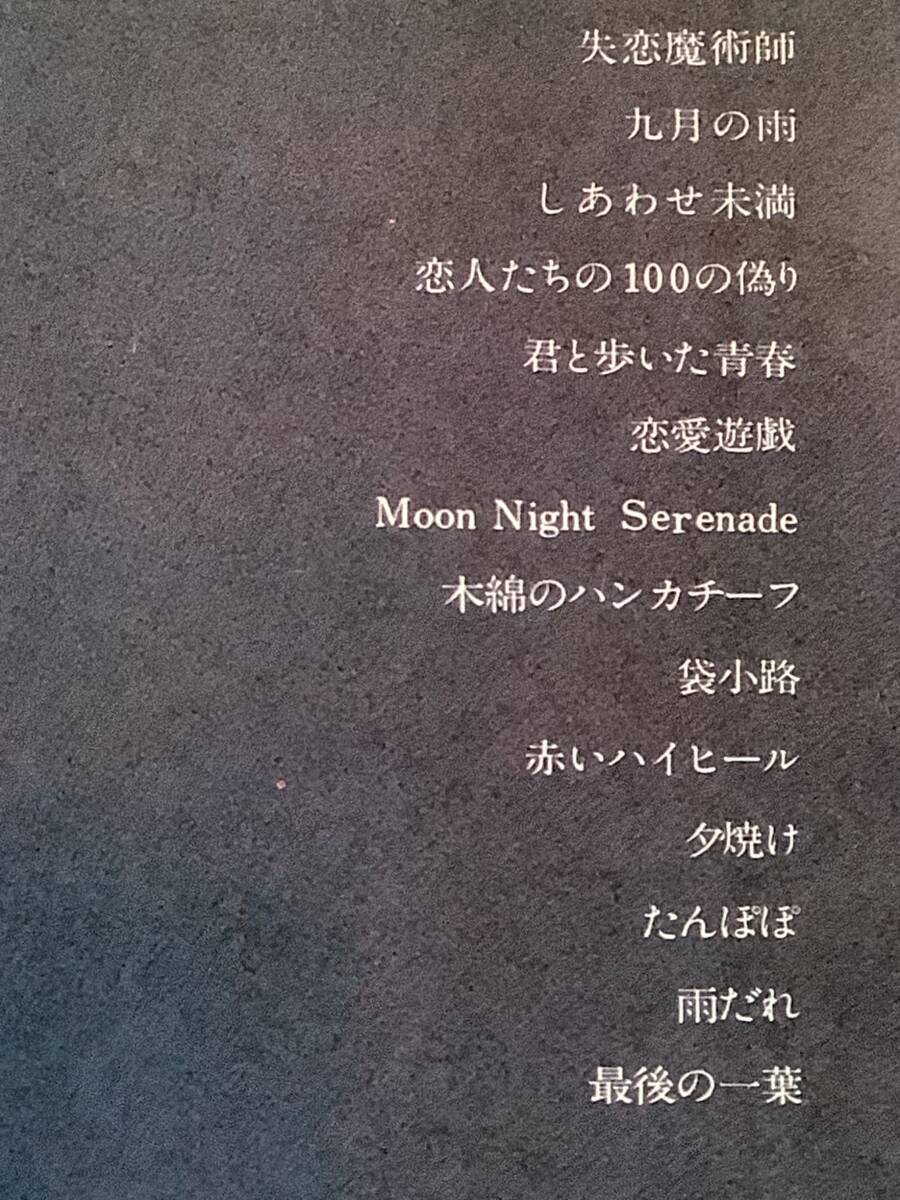 失恋魔術師
九月の雨
しあわせ未満
恋人たちの100の偽り
君と歩いた青春
恋愛遊戯
Moon Night Serenade
木綿のハンカチーフ
袋小路
赤いハイヒール
夕焼け
たんぽぽ
雨だれ
最後の一葉